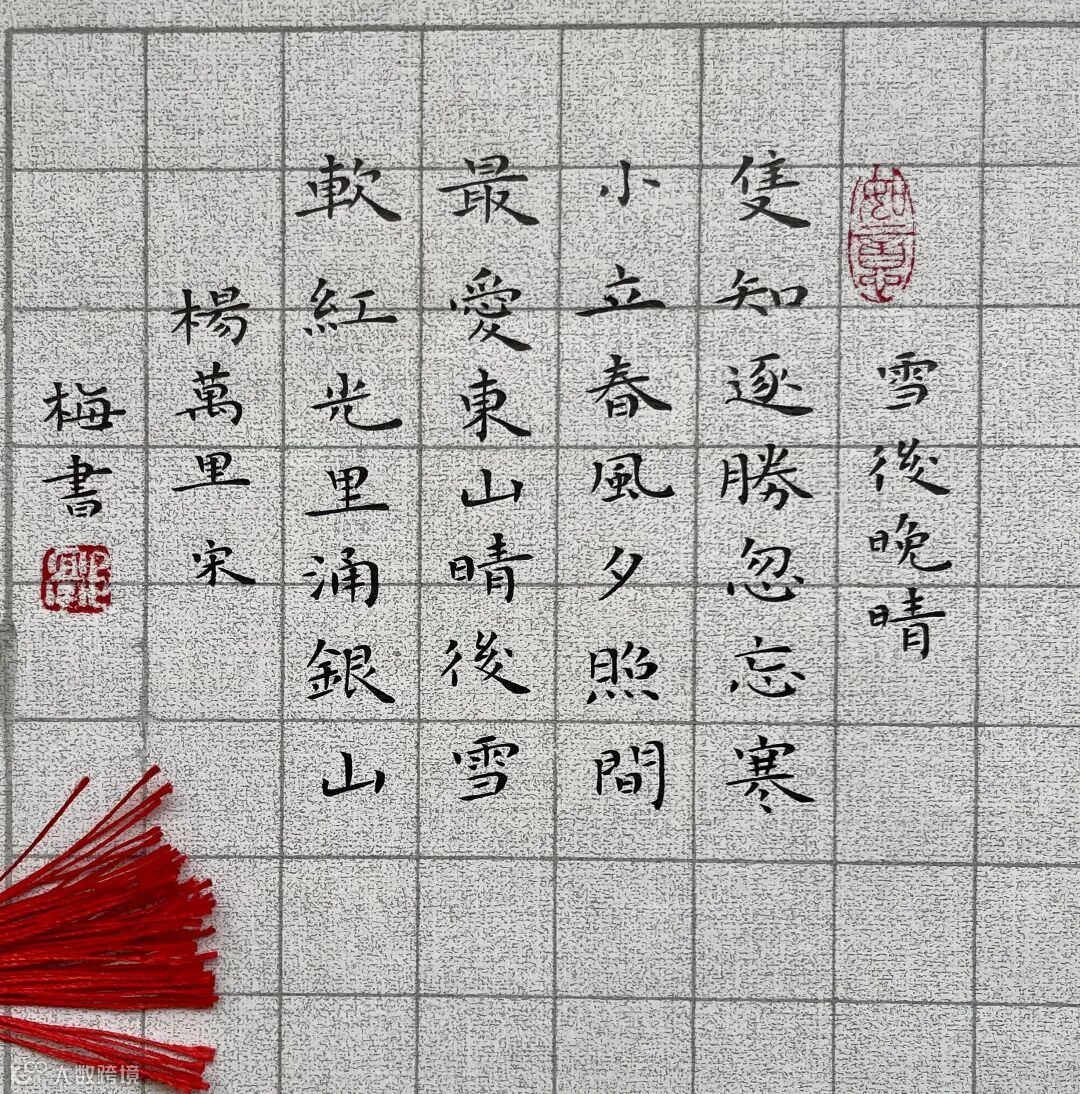 如意
雪後晚晴
隻知逐勝忽忘寒
小立春風夕照間
最愛東山晴後雪
軟紅光里涌銀山
楊萬里宋
梅書
大数跨境